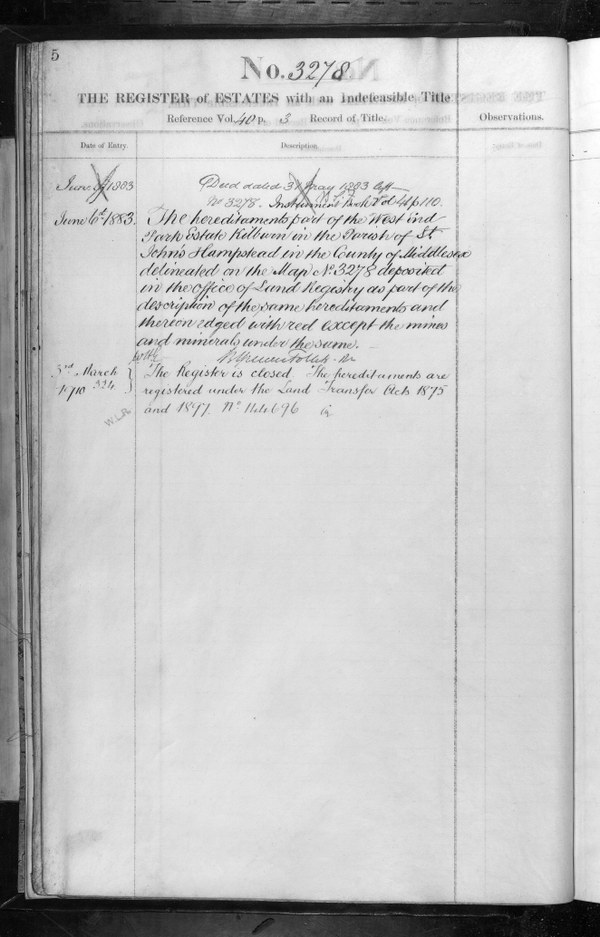 5
No. 3278
THE REGISTER of ESTATES with an Indefeasible Title
Reference Vol. 40 p. 3 Record of Title.
Observations.
Date of Entry.
Description.
June 1883
Deed dated 31 May 1883
No 3278. Instrument Book Vol 41 p 110.
June 6th 1883.
The hereditaments part of the West End
Park Estate Kilburn in the Parish of St
Johns Hampstead in the County of Middlesex
delineated on the Map No 3278 deposited
in the Office of Land Registry as part of the
description of the same hereditaments and
thereon edged with red except the mines
and minerals under the same.
3rd March
1910 324
The Register is closed The hereditaments are
registered under the Land Transfer Acts 1875
and 1897. No
W.L.R.